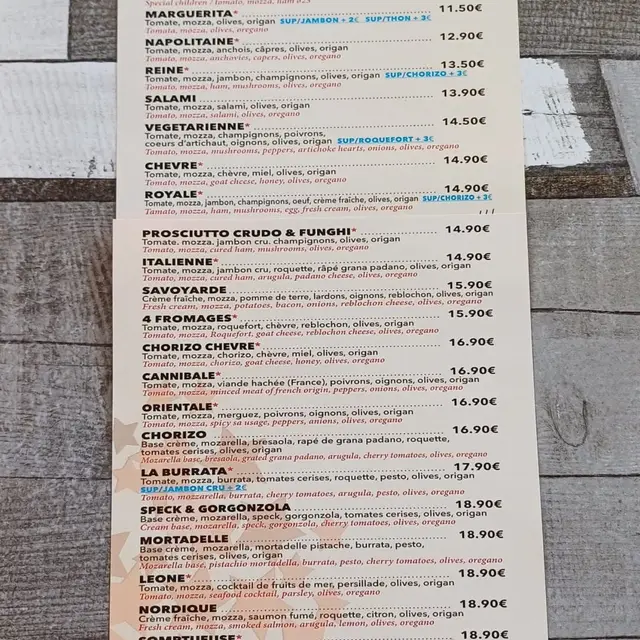 Special children / tomato, mozza, ham
MARGUERITA* 11.50€
Tomate, mozza, olives, origan SUP/JAMBON + 2€ SUP/THON + 3€
Tomato, mozza, olives, oregano
NAPOLITAINE* 12.90€
Tomate, mozza, anchois, câpres, olives, origan
Tomato, mozza, anchovies, capers, olives, oregano
REINE* 13.50€
Tomate, mozza, jambon, champignons, olives, origan SUP/CHORIZO + 3€
Tomato, mozza, ham, mushrooms, olives, oregano
SALAMI 13.90€
Tomate, mozza, salami, olives, origan
Tomato, mozza, salami, olives, oregano
VEGETARIENNE* 14.50€
Tomate, mozza, champignons, poivrons,
coeurs d'artichaut, oignons, olives, origan SUP/ROQUEFORT + 3€
Tomato, mozza, mushrooms, peppers, artichoke hearts, onions, olives, oregano
CHEVRE* 14.90€
Tomate, mozza, chèvre, miel, olives, origan
Tomato, mozza, goat cheese, honey, olives, oregano
ROYALE* 14.90€
Tomate, mozza, jambon, champignons, oeuf, crème fraîche, olives, origan SUP/CHORIZO + 3€
Tomato, mozza, ham, mushrooms, egg, fresh cream, olives, oregano
PROSCIUTTO CRUDO & FUNGHI* 14.90€
Tomate, mozza, jambon cru, champignons, olives, origan
Tomato, mozza, cured ham, mushrooms, olives, oregano
ITALIENNE* 14.90€
Tomate, mozza, jambon cru, roquette, râpé grana padano, olives, origan
Tomato, mozza, cured ham, arugula, padano cheese, olives, oregano
SAVOYARDE 15.90€
Crème fraîche, mozza, pomme de terre, lardons, oignons, reblochon, olives, origan
Fresh cream, mozza, potatoes, bacon, onions, reblochon cheese, olives, oregano
4 FROMAGES* 15.90€
Tomate, mozza, roquefort, chèvre, reblochon, olives, origan
Tomato, mozza, Roquefort, goat cheese, reblochon cheese, olives, oregano
CHORIZO CHEVRE* 16.90€
Tomate, mozza, chorizo, chèvre, miel, olives, origan
Tomato, mozza, chorizo, goat cheese, honey, olives, oregano
CANNIBALE* 16.90€
Tomate, mozza, viande hachée (France), poivrons, oignons, olives, origan
Tomato, mozza, minced meat of french origin, peppers, onions, olives, oregano
ORIENTALE* 16.90€
Tomate, mozza, merguez, poivrons, oignons, olives, origan
Tomato, mozza, spicy sa usage, peppers, anions, olives, oregano
CHORIZO 16.90€
Base crème, mozarella, bresaola, rapé de grana padano, roquette,
tomates cerises, olives, origan
Mozarella base, bresaola, grated grana padano, arugula, cherry tomatoes, olives, oregano
LA BURRATA* 17.90€
Tomate, mozza, burrata, tomates cerises, roquette, pesto, olives, origan
SUP/JAMBON CRU + 2€
Tomato, mozzarella, burrata, cherry tomatoes, arugula, pesto, olives, oregano
SPECK & GORGONZOLA 18.90€
Base crème, mozarella, speck, gorgonzola, tomates cerises, olives, origan
Cream base, mozarella, speck, gorgonzola, cherry tomatoes, olives, oregano
MORTADELLE 18.90€
Base crème, mozarella, mortadelle pistache, burrata, pesto,
tomates cerises, olives, origan
Mozarella base, pistachio mortadella, burrata, pesto, cherry tomatoes, olives, oregano
LEONE* 18.90€
Tomate, mozza, cocktail de fruits de mer, persillade, olives, origan
Tomato, mozza, seafood cocktail, parsley, olives, oregano
NORDIQUE 18.90€
Crème fraîche, mozza, saumon fumé, roquette, citron, olives, origan
Fresh cream, mozza, smoked salmon, arugula, lemon, olives, oregano
SOMPTUEUSE* 18.90€